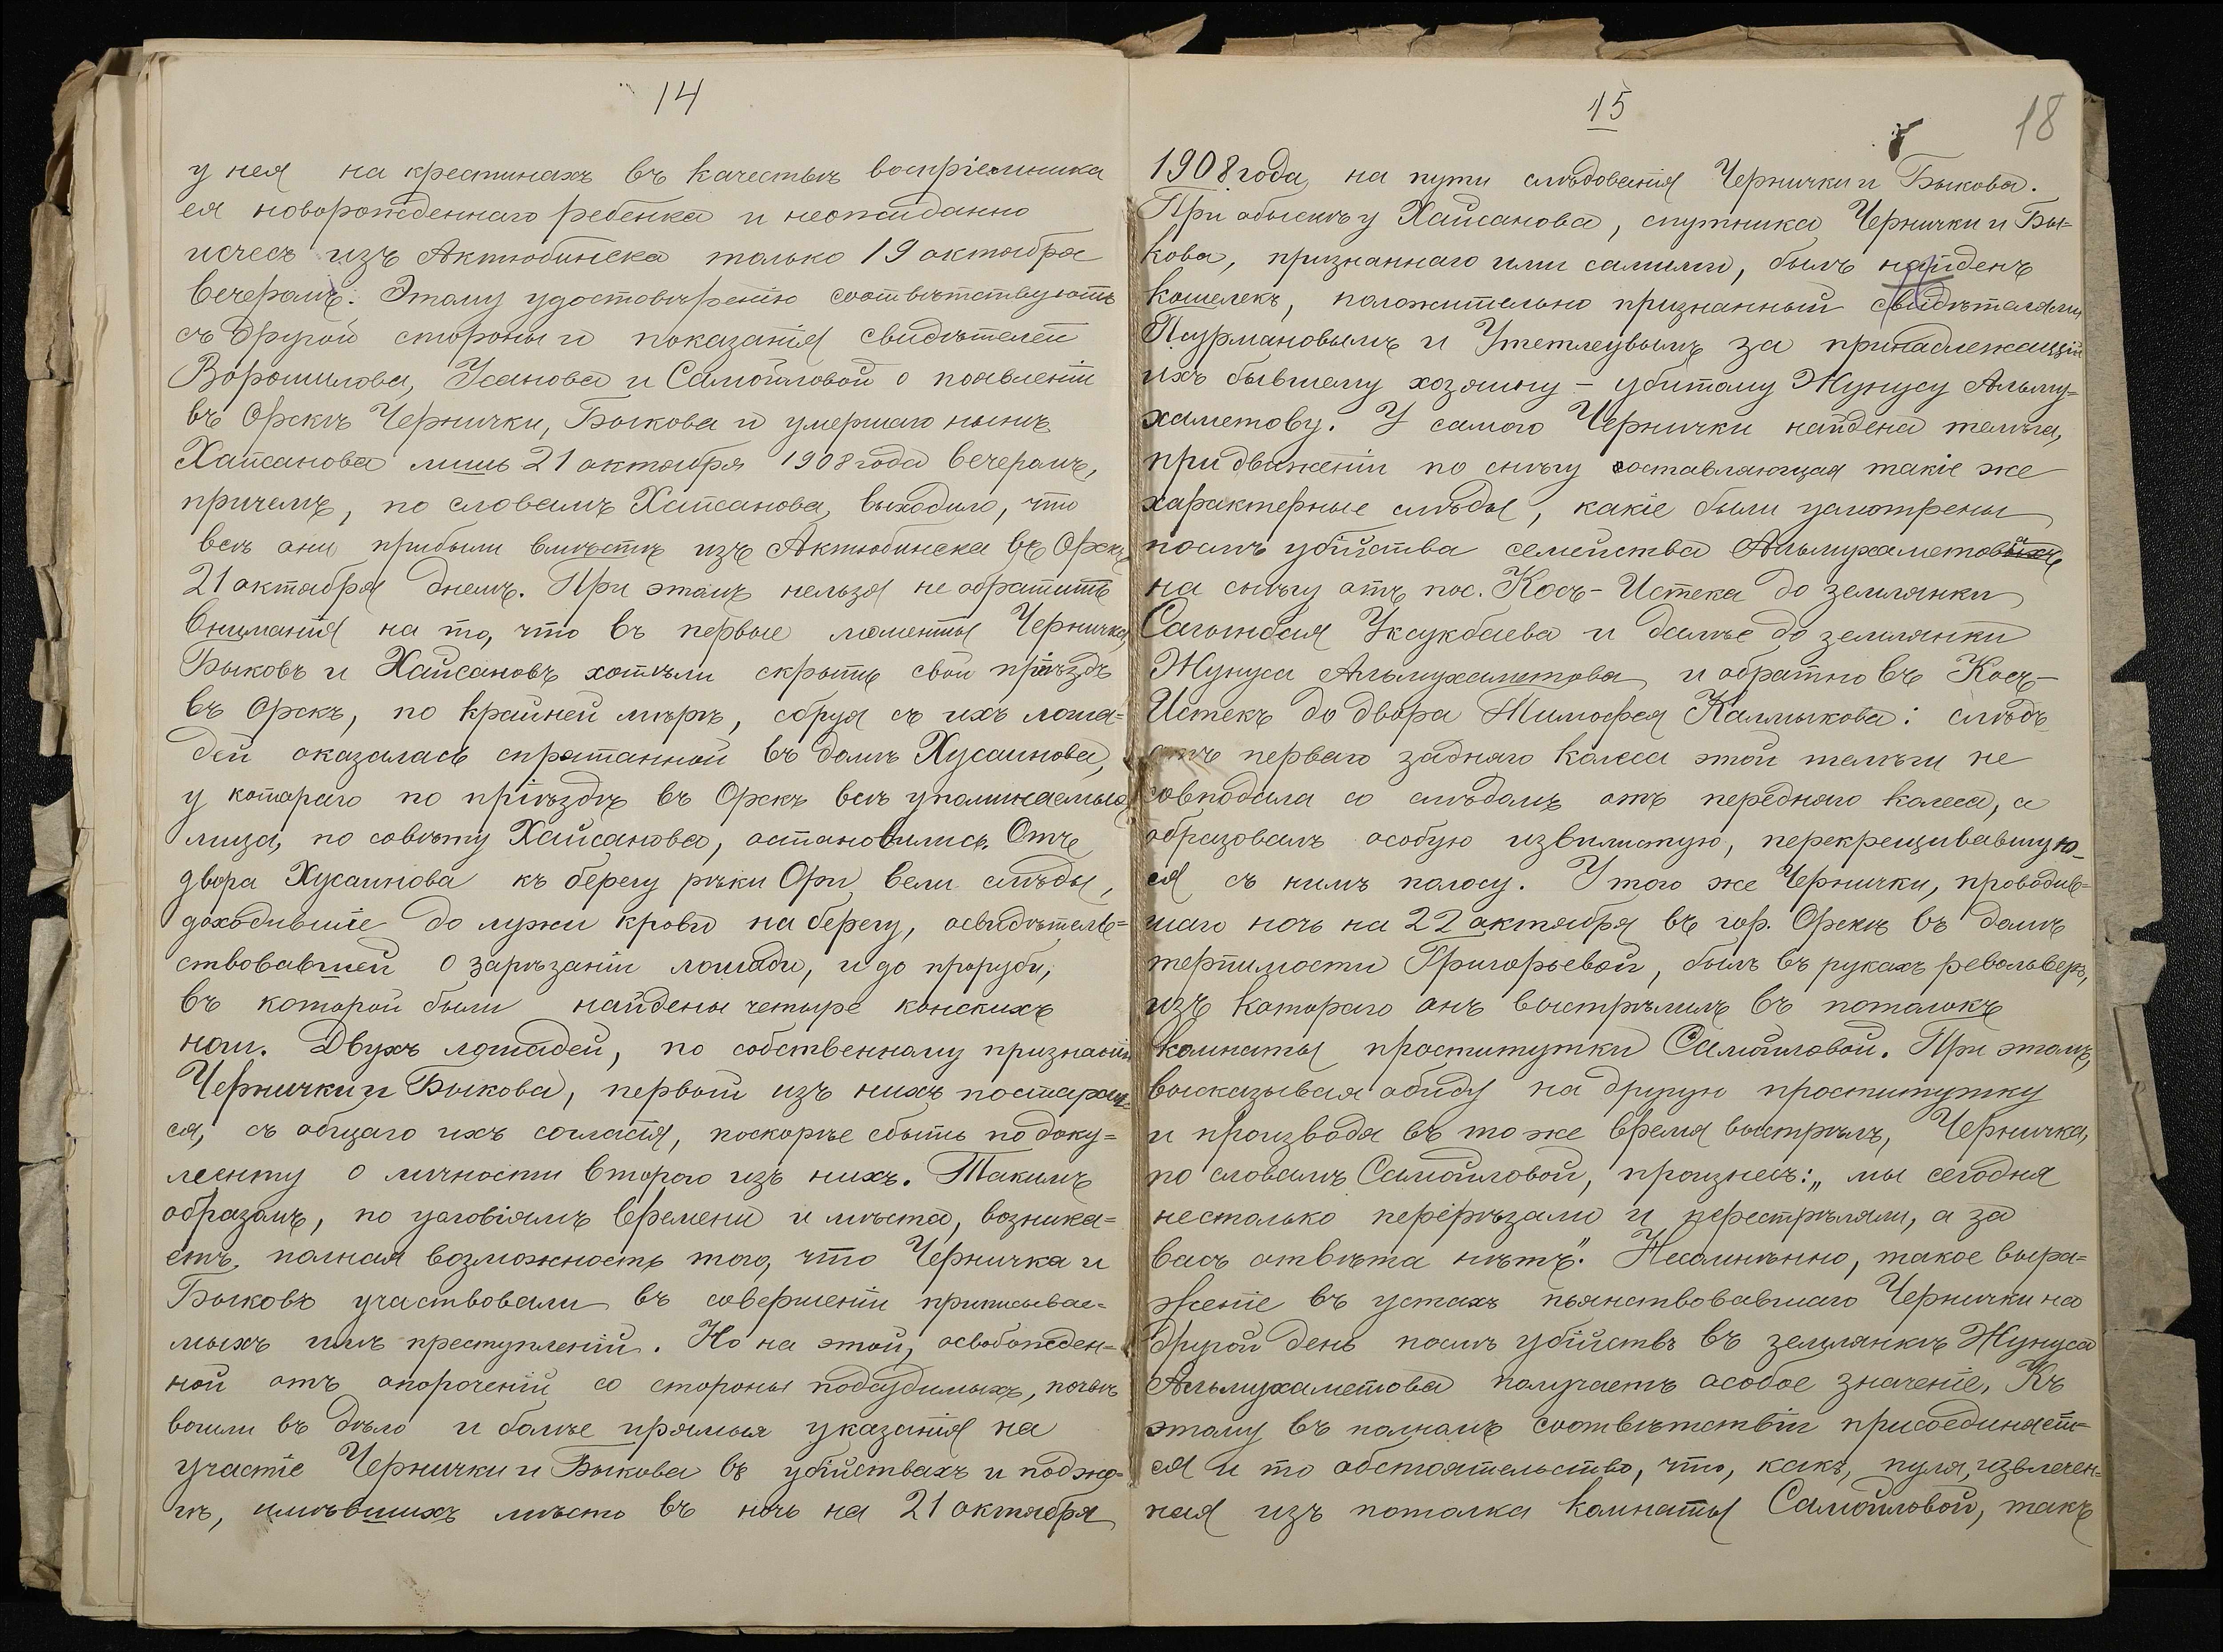 14
у нея на крестинахъ въ качествѣ воспріемника
ея новорожденнаго ребенка и неожиданно
исчезъ изъ Актюбинска только 19 октября
вечеромъ. Этому удостовѣренію соотвѣтствуютъ
съ другой стороны и показанія свидѣтелей
Ворошилова, Усанова и Самойловой о появленіи
въ Орскѣ Чернички, Быкова и умершаго нынѣ
Хайсанова лишь 21 октября 1908 года вечеромъ,
причемъ, по словамъ Хайсанова, выходило, что
всѣ они прибыли вмѣстѣ изъ Актюбинска въ Орскъ
21 октября днемъ. При этомъ нельзя не обратить
вниманія на то, что въ первые моменты Черничка,
Быковъ и Хайсановъ хотѣли скрыть свой пріѣздъ
въ Орскъ, по крайней мѣрѣ, сбруя съ ихъ лоша=
дей оказалась спрятанной въ домѣ Хусаинова,
у котораго по пріѣздѣ въ Орскъ всѣ упоминаемыя
лица, по совѣту Хайсанова, остановились. Отъ
двора Хусаинова къ берегу рѣки Ори вели слѣды,
доходившіе до лужи крови на берегу, освидѣтель=
ствовавшей о зарѣзаніи лошади, и до проруби,
въ которой были найдены четыре конскихъ
ноги. Двухъ лошадей, по собственному признанію
Чернички и Быкова, первый изъ нихъ постарал=
ся, съ общаго ихъ согласія, поскорѣе сбыть по доку=
менту о личности второго изъ нихъ. Такимъ
образомъ, по условіямъ времени и мѣста, возника=
етъ полная возможность того, что Черничка и
Быковъ участвовали въ совершеніи приписывае=
мыхъ имъ преступленій. Но на этой, освобожден=
ной отъ опороченій со стороны подсудимыхъ, почвѣ
вошли въ дѣло и болѣе прямыя указанія на
участіе Чернички и Быкова въ убійствахъ и поджо=
гѣ, имѣвшихъ мѣсто въ ночь на 21 октября
15
18
1908 года, на пути слѣдованія Чернички и Быкова.
При обыскѣ у Хайсанова, спутника Чернички и Бы=
кова, признаннаго ими самими, былъ найденъ
кошелекъ, положительно признанный свидѣтелями
Пурмановымъ и Утетлеувымъ за принадлежащій
ихъ бывшему хозяину – убитому Жунусу Альму=
хаметову. У самого Чернички найдена телѣга,
при движеніи по снѣгу оставляющая такіе же
характерные слѣды, какіе были усмотрены
послѣ убійства семейства Альмухаметовыхъ
на снѣгу отъ пос. Косъ-Истека до землянки
Сагындая Укукбаева и далѣе до землянки
Жунуса Альмухаметова и обратно въ Косъ-
Истекъ до двора Тимофея Калмыкова: слѣдъ
отъ перваго задняго колеса этой телѣги не
совпадала со слѣдомъ отъ передняго колеса, а
образовалъ особую извилистую, перекрещивавшую-
ся съ нимъ полосу. У того же Чернички, проводив=
шаго ночь на 22 октября въ гор. Орскѣ въ домѣ
терпимости Григорьевой, былъ въ рукахъ револьверъ,
изъ котораго онъ выстрѣлилъ въ потолокъ
комнаты проститутки Самойловой. При этомъ,
высказывая обиду на другую проститутку
и производя въ то же время выстрѣлъ, Черничка,
по словамъ Самойловой, произнесъ: „мы сегодня
нестолько перерѣзали и перестрѣляли, а за
васъ отвѣта нѣтъ". Несомнѣнно, такое выра=
женіе въ устахъ пьянствовавшаго Чернички на
другой день послѣ убійствъ въ землянкѣ Жунуса
Альмухаметова получаетъ особое значеніе. Къ
этому въ полномъ соотвѣтствіи присоединяет=
ся и то обстоятельство, что, какъ, пуля, извлечен=
ная изъ потолка комнаты Самойловой, такъ